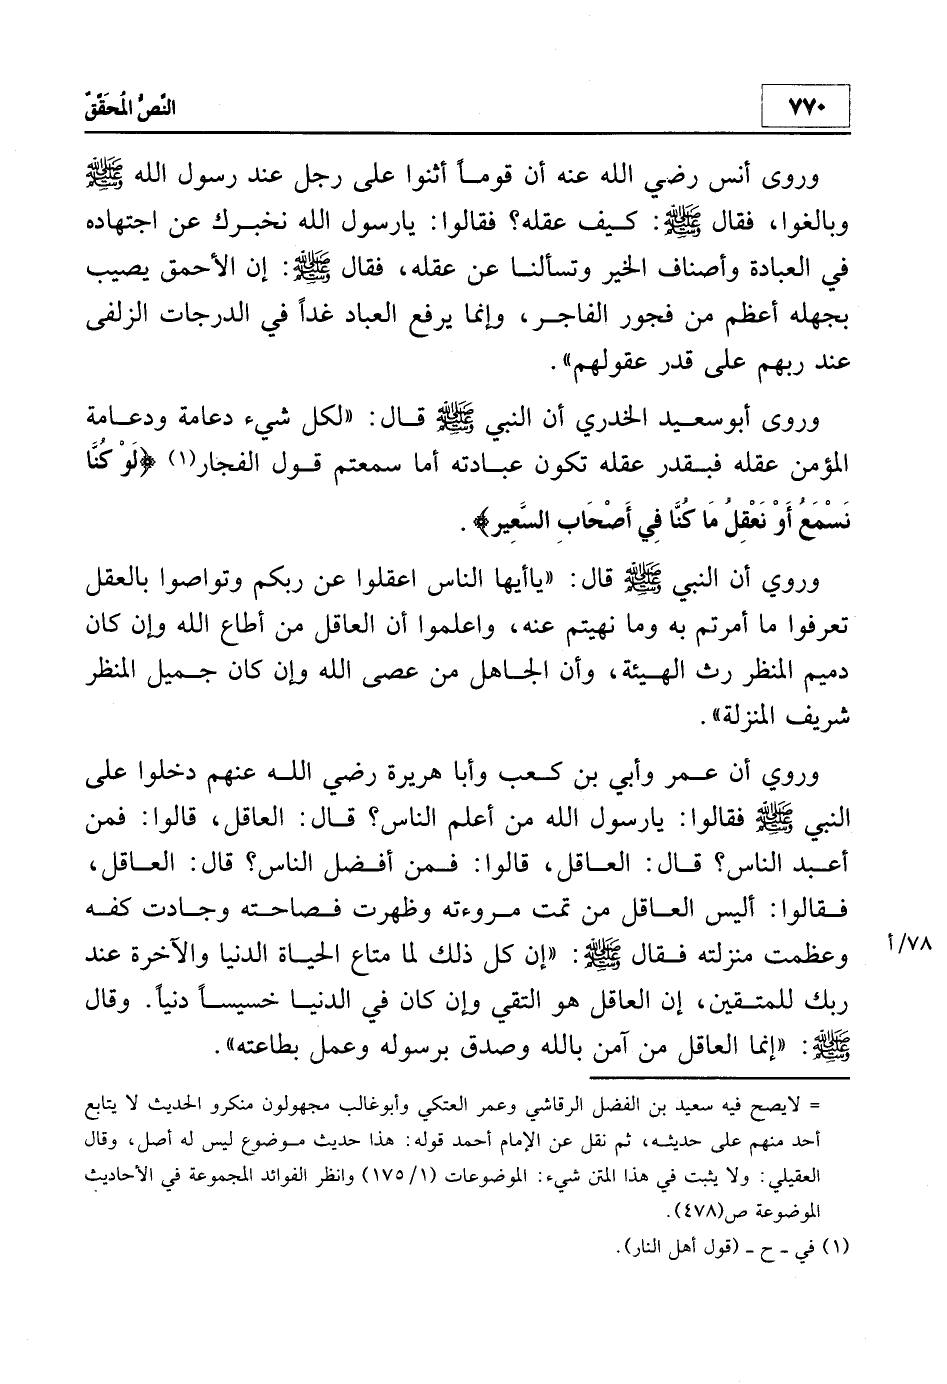 النَّصُّ المُحَقَّقُ ٧٧٠
وروى أنس رضي الله عنه أن قوماً أثنوا على رجل عند رسول الله ﷺ
وبالغوا، فقال ﷺ: كيف عقله؟ فقالوا: يارسول الله نخبرك عن اجتهاده
في العبادة وأصناف الخير وتسألنا عن عقله، فقال ﷺ: إن الأحمق يصيب
بجهله أعظم من فجور الفاجر، وإنما يرفع العباد غداً في الدرجات الزلفى
عند ربهم على قدر عقولهم».
وروى أبوسعيد الخدري أن النبي ﷺ قال: «لكل شيء دعامة ودعامة
المؤمن عقله فبقدر عقله تكون عبادته أما سمعتم قول الفجار(١) ﴿لَوْ كُنَّا
نَسْمَعُ أَوْ نَعْقِلُ مَا كُنَّا فِي أَصْحَابِ السَّعِيرِ﴾.
وروي أن النبي ﷺ قال: «ياأيها الناس اعقلوا عن ربكم وتواصوا بالعقل
تعرفوا ما أمرتم به وما نهيتم عنه، واعلموا أن العاقل من أطاع الله وإن كان
دميم المنظر رث الهيئة، وأن الجاهل من عصى الله وإن كان جميل المنظر
شريف المنزلة».
وروي أن عمر وأبي بن كعب وأبا هريرة رضي الله عنهم دخلوا على
النبي ﷺ فقالوا: يارسول الله من أعلم الناس؟ قال: العاقل، قالوا: فمن
أعبد الناس؟ قال: العاقل، قالوا: فمن أفضل الناس؟ قال: العاقل،
فقالوا: أليس العاقل من تمت مروءته وظهرت فصاحته وجادت كفه
وعظمت منزلته فقال ﷺ: «إن كل ذلك لما متاع الحياة الدنيا والآخرة عند
٧٨/أ
ربك للمتقين، إن العاقل هو التقي وإن كان في الدنيا خسيساً دنياً. وقال
ﷺ: «إنما العاقل من آمن بالله وصدق برسوله وعمل بطاعته».
= لايصح فيه سعيد بن الفضل الرقاشي وعمر العتكي وأبوغالب مجهولون منكرو الحديث لا يتابع
أحد منهم على حديثه، ثم نقل عن الإمام أحمد قوله: هذا حديث موضوع ليس له أصل، وقال
العقيلي: ولا يثبت في هذا المتن شيء: الموضوعات (١/ ١٧٥) وانظر الفوائد المجموعة في الأحاديث
الموضوعة ص(٤٧٨).
(١) في - ح - (قول أهل النار).